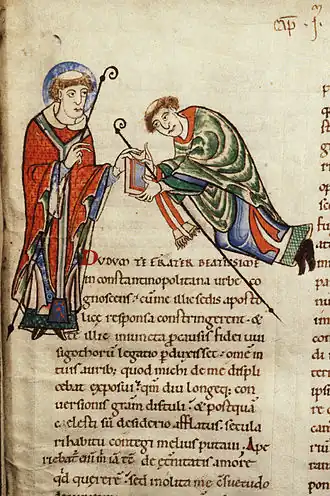 CAP I
DUDUM TE FRATER BEATISSIME
in constantinopolitana urbe co
gnoscens, cũ me illic sedis aposto
licę responsa constringerent · &
te illic iniuncta p causis fidei vui
sigothorũ legatio pduxisset · omne in
tuis aurib; quod michi de me displi
cebat exposui · qm̃ diu longeq; con
versionis gratiã distuli · & postquã
cęlesti sũ desiderio afflatus, secula
ri habitu contegi melius putavi · Ape
riebat eni m̃ iã de
amore
qd quererẽ · sed inolita me c̃suetudo